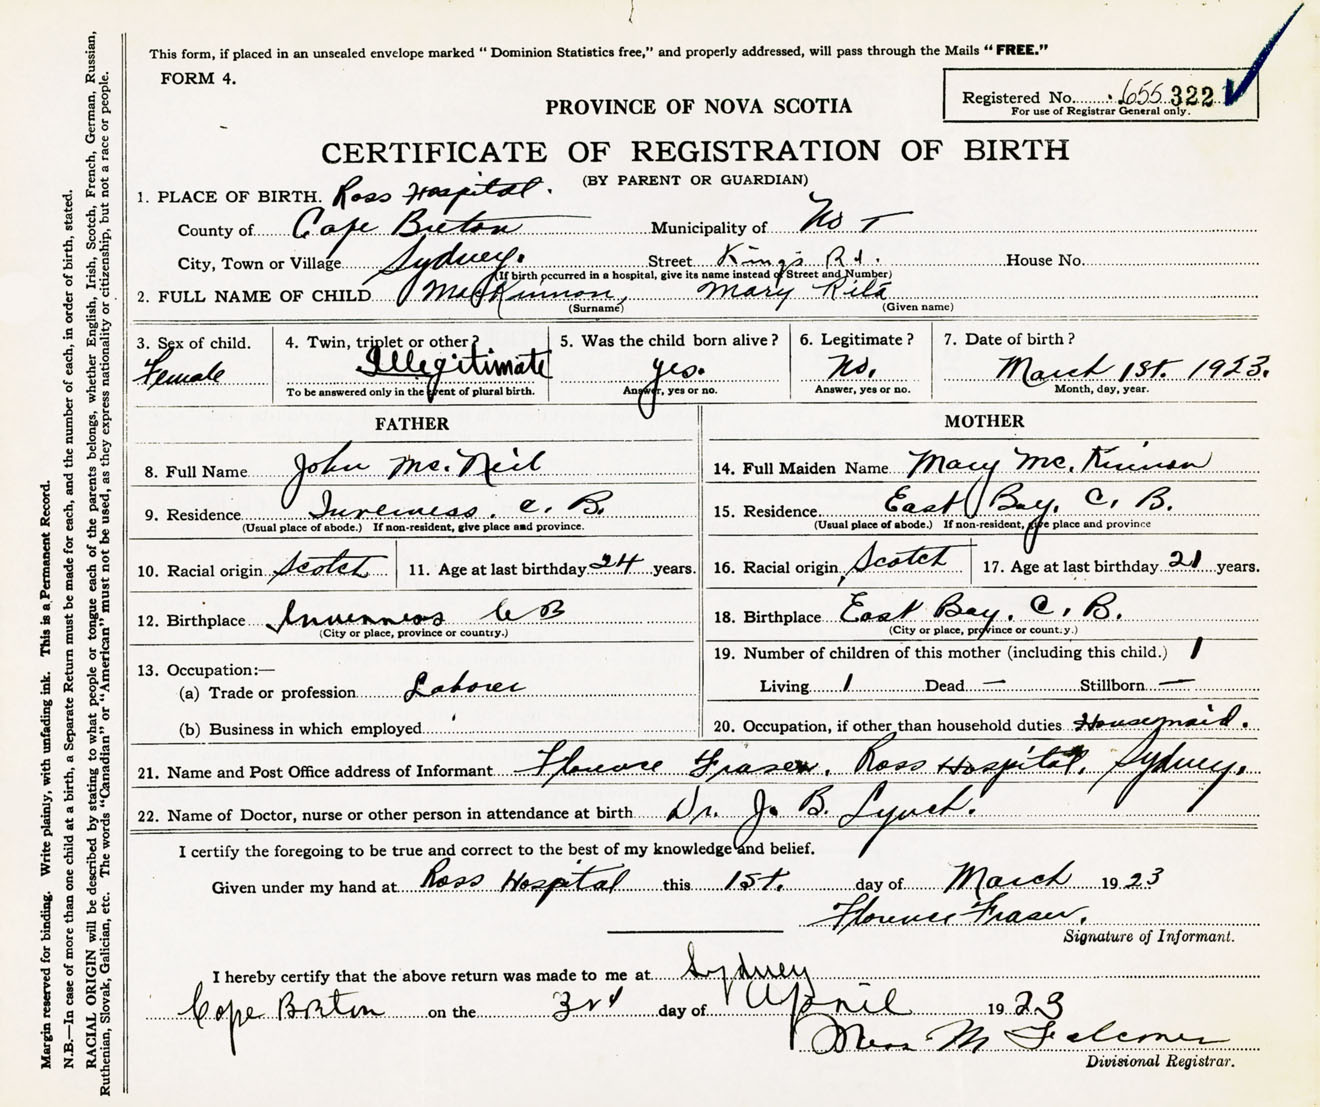 This form, if placed in an unsealed envelope marked “ Dominion Statistics free,” and properly addressed, will pass through the Mails “ FREE.”
FORM 4.
Registered No. 655 322
For use of Registrar General only.
PROVINCE OF NOVA SCOTIA
CERTIFICATE OF REGISTRATION OF BIRTH
(BY PARENT OR GUARDIAN)
1. PLACE OF BIRTH. Ross Hospital.
County of Cape Breton Municipality of No
City, Town or Village Sydney. Street Kings Rd. House No.
(If birth occurred in a hospital, give its name instead of Street and Number)
2. FULL NAME OF CHILD MacKinnon, Mary Rita
(Surname) (Given name)
3. Sex of child. 4. Twin, triplet or other? 5. Was the child born alive? 6. Legitimate? 7. Date of birth?
Female Illegitimate yes. No. March 1st. 1923.
To be answered only in the event of plural birth. Answer, yes or no. Answer, yes or no. Month, day, year.
FATHER
8. Full Name John Mc. Neil
9. Residence Inverness. C. B.
(Usual place of abode.) If non-resident, give place and province.
10. Racial origin Scotch 11. Age at last birthday 24 years.
12. Birthplace Inverness C B
(City or place, province or country.)
13. Occupation:—
(a) Trade or profession Laborer
(b) Business in which employed
MOTHER
14. Full Maiden Name Mary Mc. Kinnon
15. Residence East Bay, C. B.
(Usual place of abode.) If non-resident, give place and province
16. Racial origin Scotch 17. Age at last birthday 21 years.
18. Birthplace East Bay. C. B.
(City or place, province or country.)
19. Number of children of this mother (including this child.) 1
Living 1 Dead — Stillborn —
20. Occupation, if other than household duties Housemaid.
21. Name and Post Office address of Informant Florence Fraser, Ross Hospital, Sydney.
22. Name of Doctor, nurse or other person in attendance at birth Dr. J. B. Lynch.
I certify the foregoing to be true and correct to the best of my knowledge and belief.
Given under my hand at Ross Hospital this 1st. day of March 1923
Florence Fraser.
Signature of Informant.
I hereby certify that the above return was made to me at Sydney
Cape Breton on the 3rd day of April 1923
Miss M Falconer
Divisional Registrar.
Margin reserved for binding. Write plainly, with unfading ink. This is a Permanent Record.
N.B.—In case of more than one child at a birth, a Separate Return must be made for each, and the number of each, in order of birth, stated.
RACIAL ORIGIN will be described by stating to what people or tongue each of the parents belongs, whether English, Irish, Scotch, French, German, Russian,
Ruthenian, Slovak, Galician, etc. The words “Canadian” or “American” must not be used, as they express nationality or citizenship, but not a race or people.